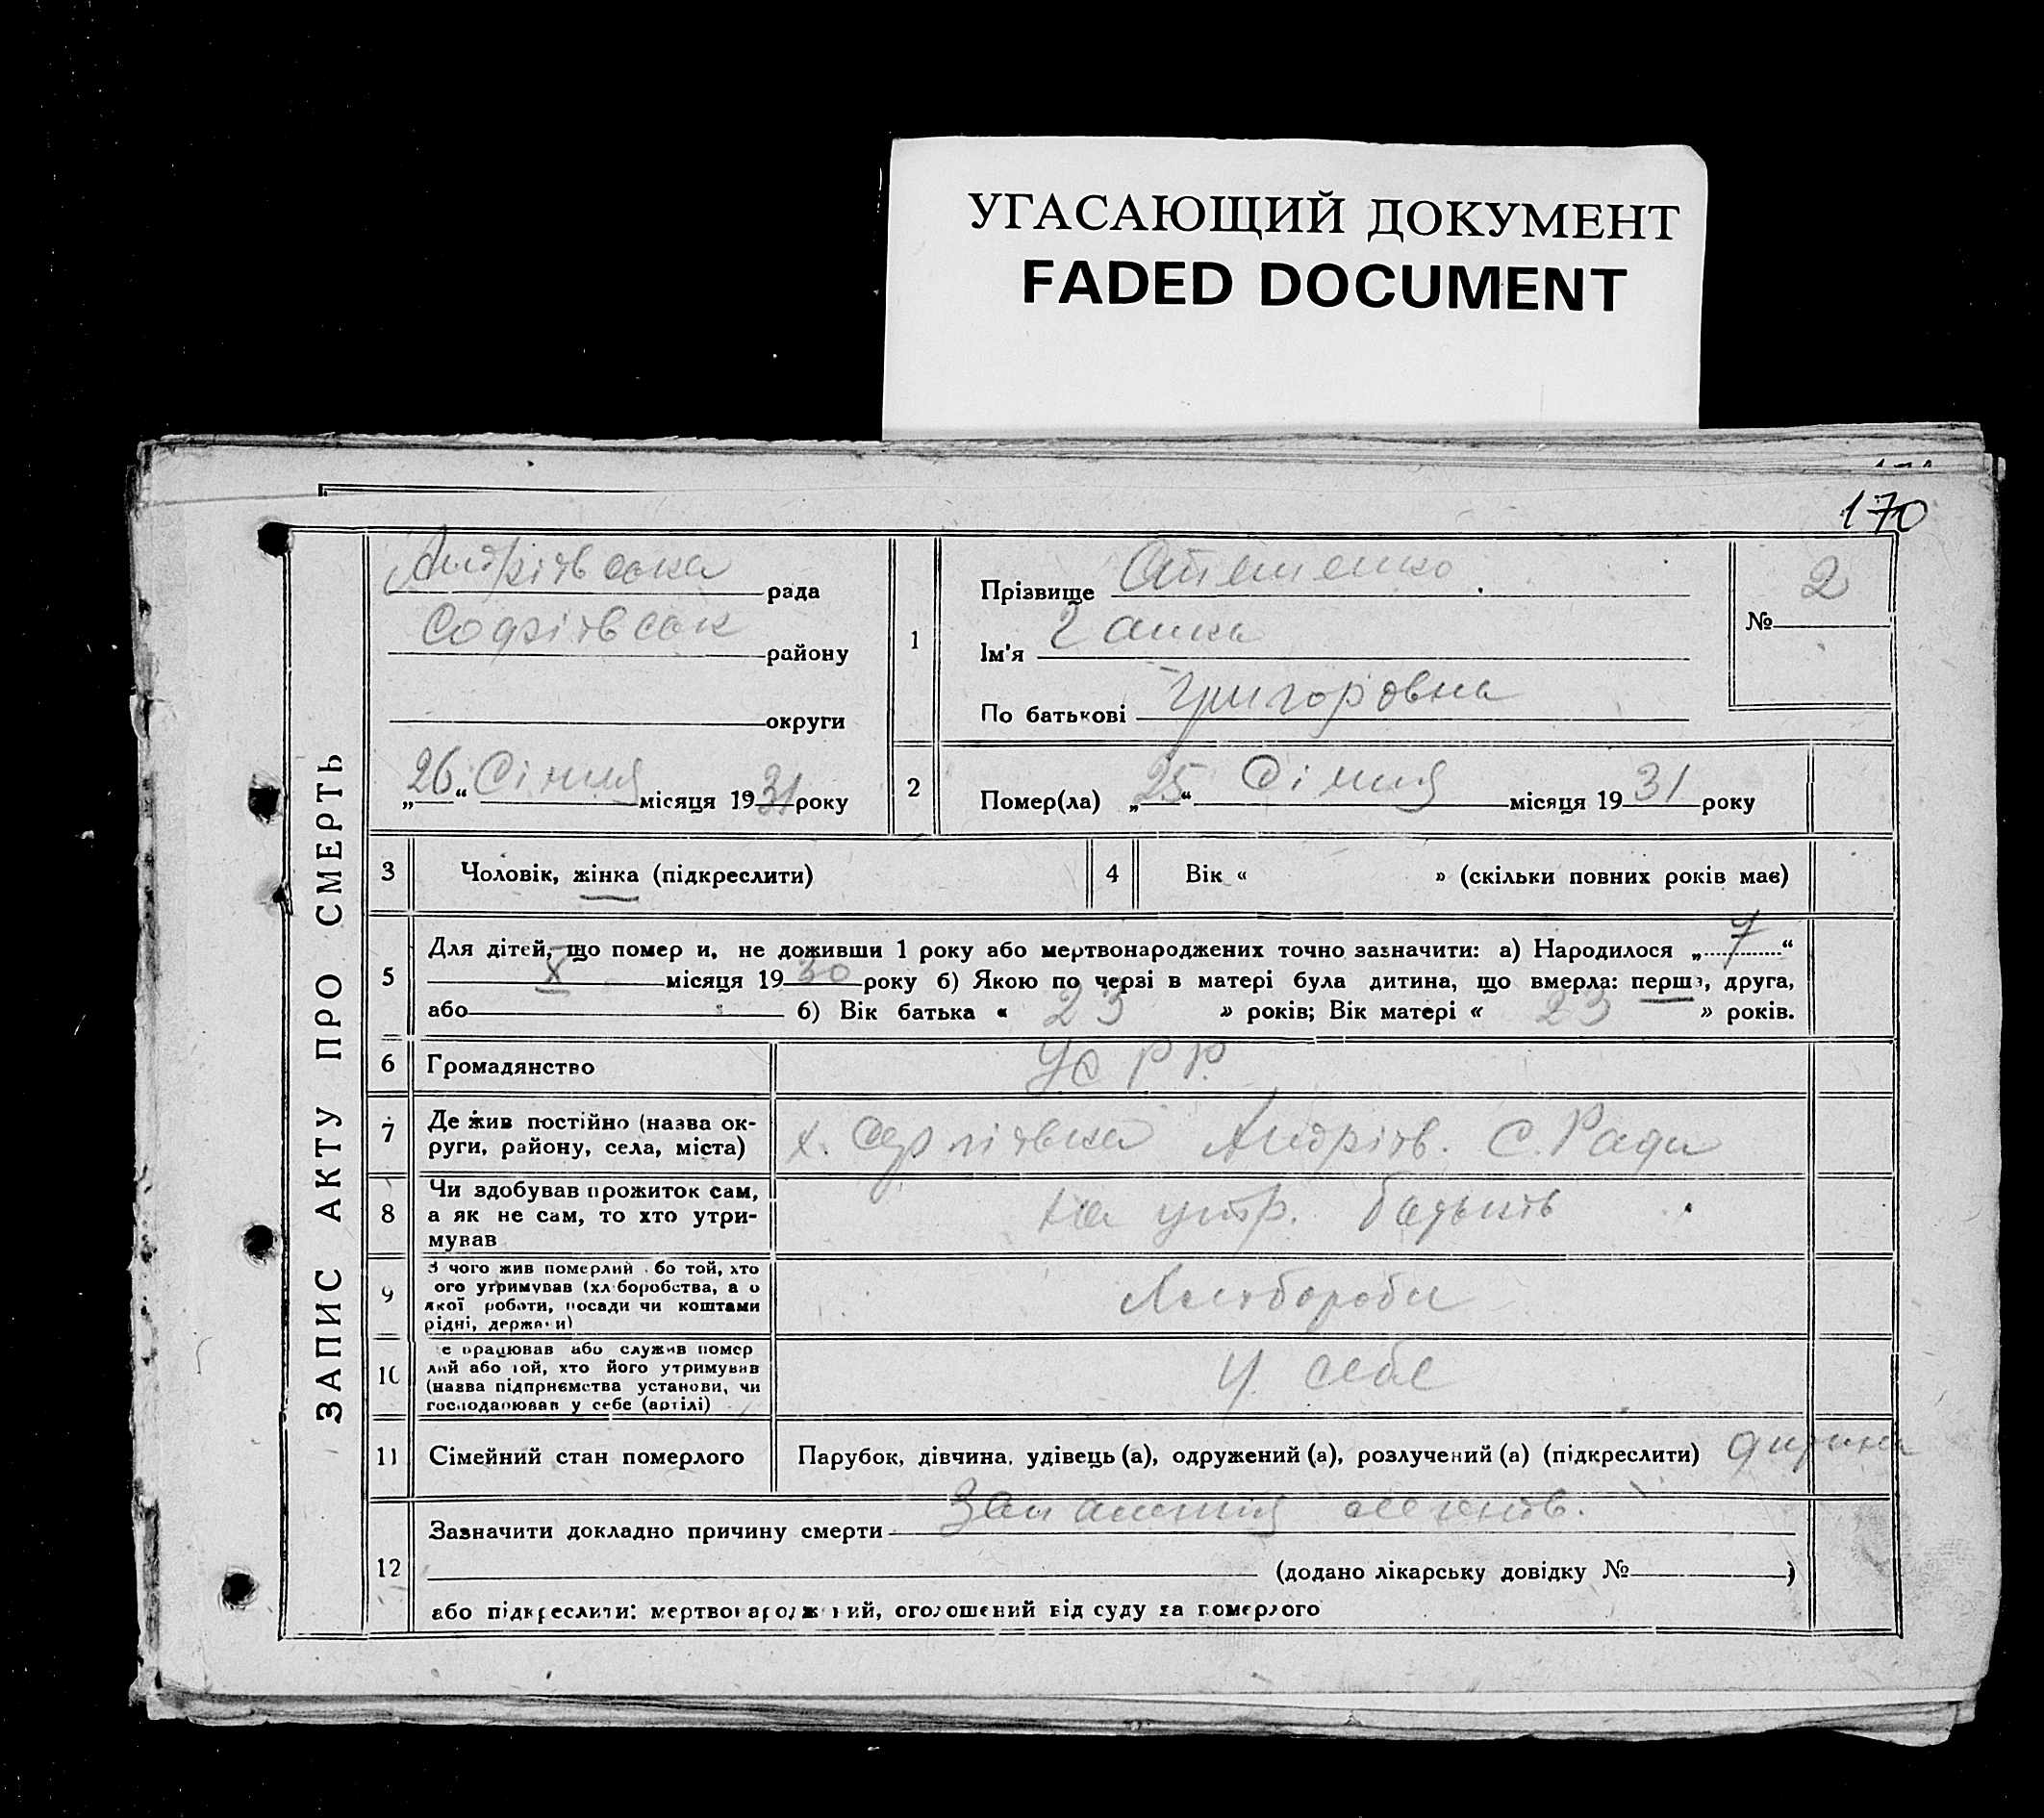 УГАСАЮЩИЙ ДОКУМЕНТ
FADED DOCUMENT
170
ЗАПИС АКТУ ПРО СМЕРТЬ
Андріївська рада
Софіївськ району
округи
„26“ Січня місяця 1931 року
1
Прізвище
Ім'я Ганна
По батькові Григоровна
№ 2
2
Помер(ла) „25“ Січня місяця 1931 року
3 Чоловік, жінка (підкреслити)
4 Вік « » (скільки повних років має)
5
Для дітей, що помер и, не доживши 1 року або мертвонароджених точно зазначити: а) Народилося „7“
X місяця 1930 року б) Якою по черзі в матері була дитина, що вмерла: перша, друга,
або б) Вік батька « 23 » років; Вік матері « 23 » років.
6 Громадянство УСРР.
7 Де жив постійно (назва ок-
руги, району, села, міста)
х. Андріїв. С. Ради
8 Чи здобував прожиток сам,
а як не сам, то хто утри-
мував
на утр. батьків
9 З чого жив померлий або той, хто
його утримував (хліборобства, а о
якої роботи, посади чи коштами
рідні, держави)
Хлібороби
10 е працював або служив помер
лий або той, хто його утримував
(назва підприємства установи, чи
господарював у себе (артілі)
У себе
11 Сімейний стан померлого Парубок, дівчина, удівець (а), одружений (а), розлучений (а) (підкреслити) дитина
12
Зазначити докладно причину смерти Запалення легенів.
(додано лікарську довідку № )
або підкреслити: мертвонароджений, оголошений від суду за померлого